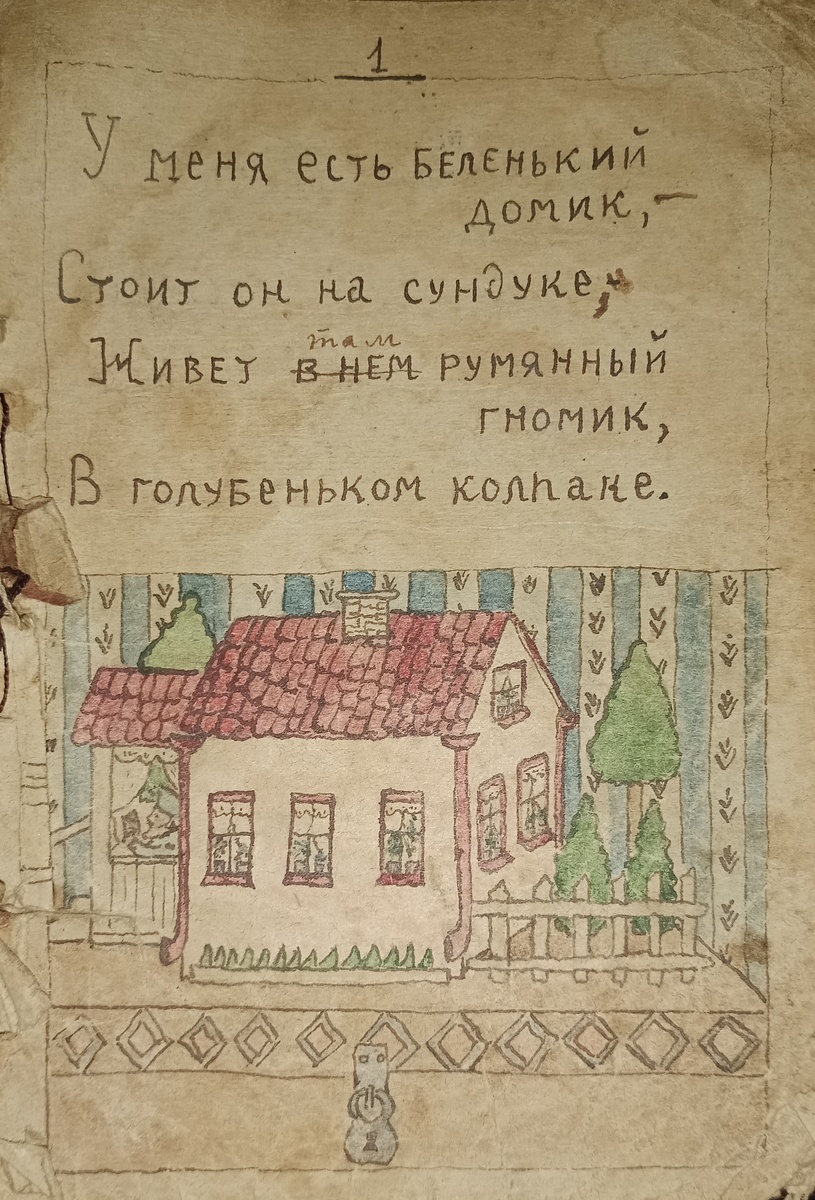 1
У меня есть беленький
домик,—
Стоит он на сундуке,
там
Живет в нем румянный
гномик,
В голубеньком колпаке.